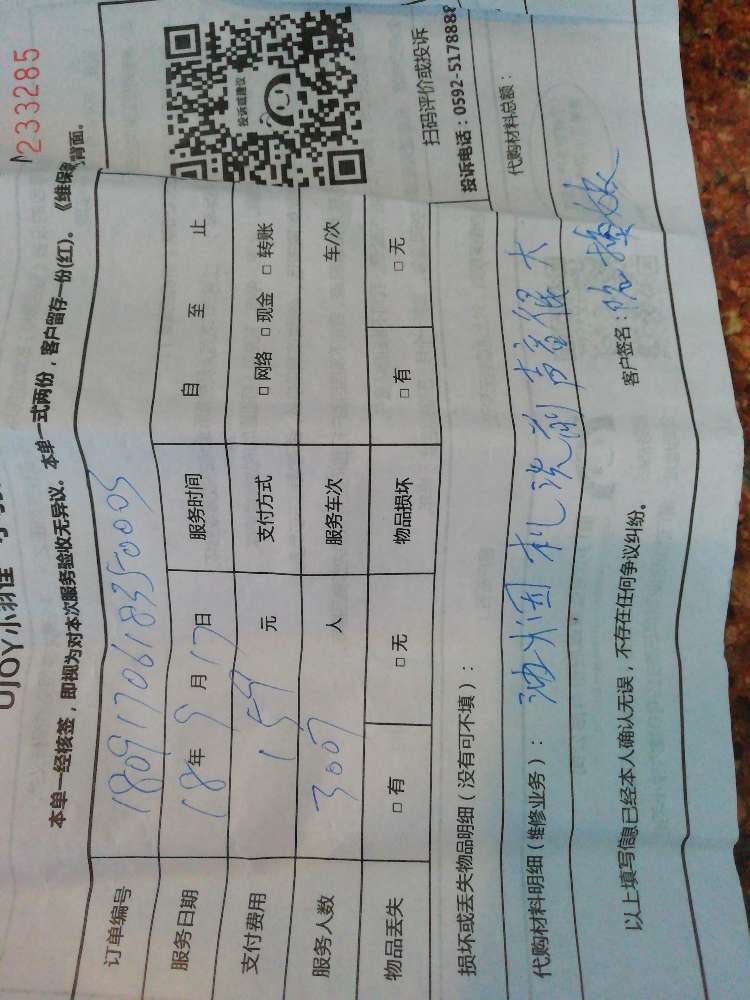 233285
UJOY小羽佳
本单一经核签，即视为对本次服务验收无异议。本单一式两份，客户留存一份(红)。《维保 背面。
订单编号 180917061835000S
服务日期 18年9月17日 服务时间 自 至 止
支付费用 159 元 支付方式 □ 网络 □ 现金 □ 转账
服务人数 3007 人 服务车次 车/次
物品丢失 □ 有 □ 无 物品损坏 □ 有 □ 无
损坏或丢失物品明细（没有可不填）：
代购材料明细（维修业务）： 油烟机洗前声音很大
代购材料总额：
以上填写信息已经本人确认无误，不存在任何争议纠纷。
客户签名：
投诉或建议
扫码评价或投诉
投诉电话：0592-5178888